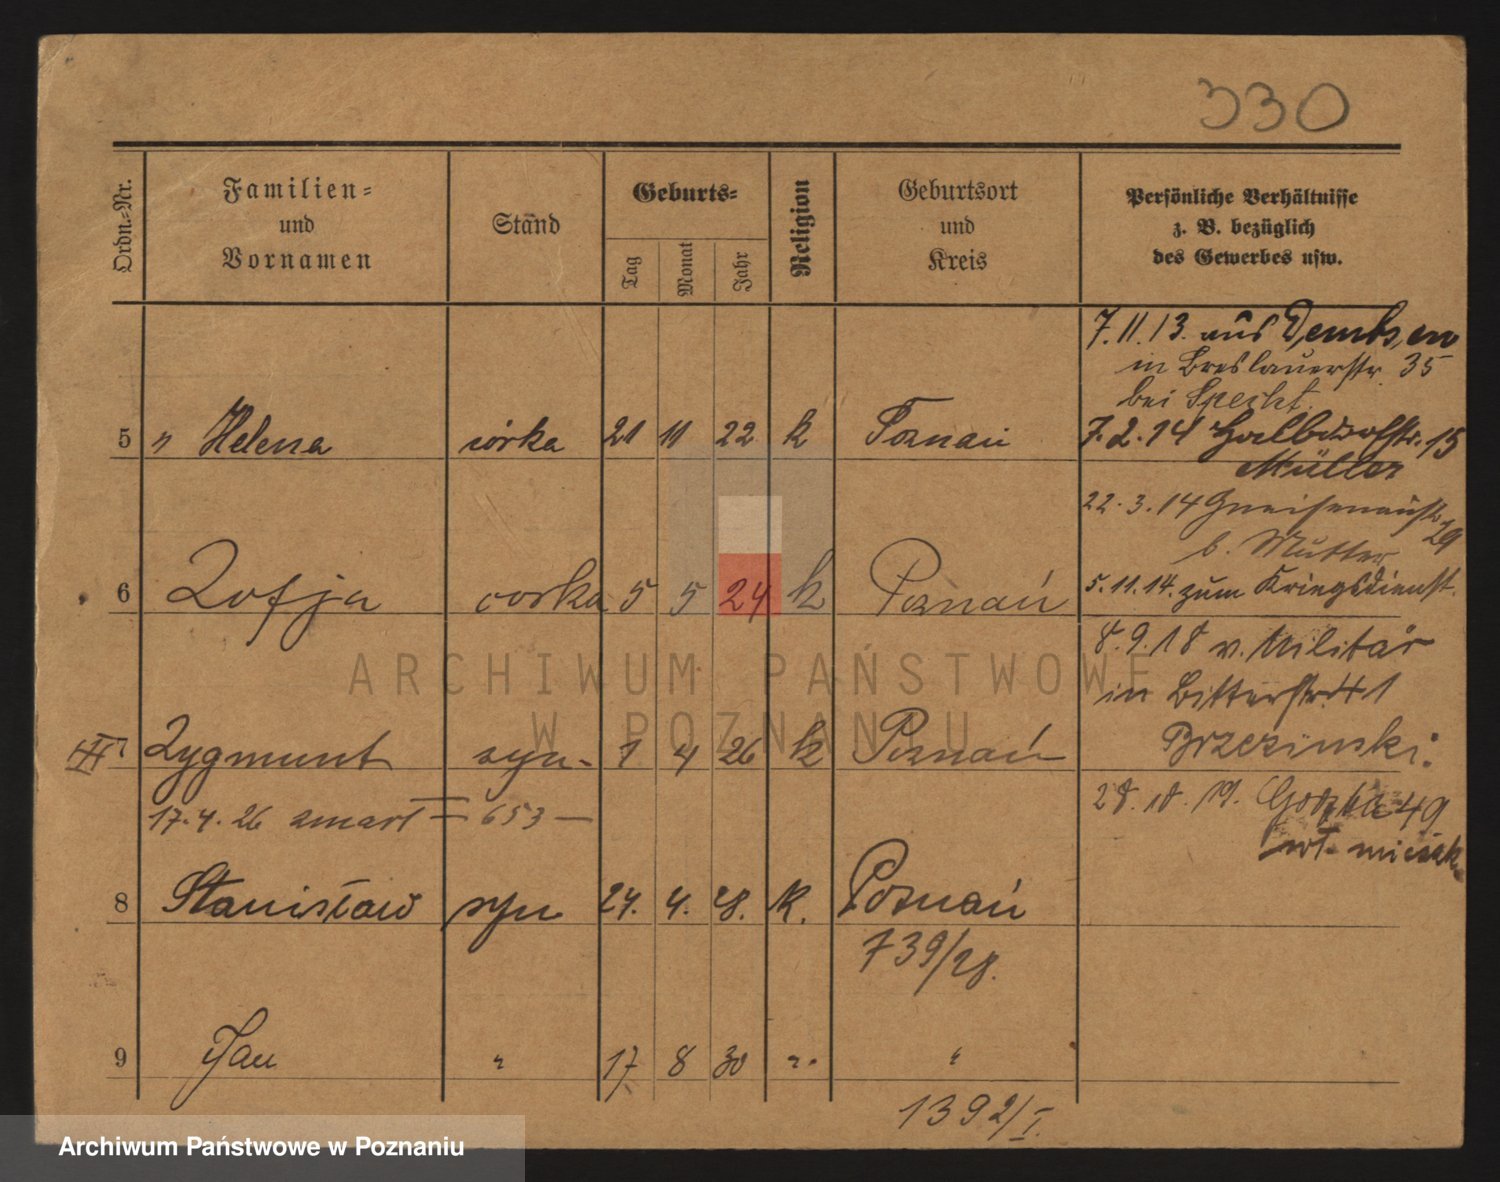 330
Ordn.-Nr.
Familien-
und
Vornamen
Stand
Geburts-
Tag
Monat
Jahr
Religion
Geburtsort
und
Kreis
Persönliche Verhältnisse
z. B. bezüglich
des Gewerbes usw.
7.11.13. aus Dembsen
in Breslauerstr. 35
bei Specht.
5 " Helena córka 21 11 22 k Poznań
7.2.14 Halbdorfstr. 15
Müller
22.3.14 Gneisenaustr. 29
b. Mutter
6 Zofja corka 5 5 24 k Poznań
5.11.14. zum Kriegsdienst.
8.9.18 v. Militär
in Bitterstr. 1
Brzezinski.
7 Zygmunt syn - 1 4 26 k Poznań
17.4.26 zmarł = 653 —
28.10.19. 49
8 Stanisław syn 24. 4. 28. K. Poznań
739/28.
9 Jan " 17 8 30 " "
1392/I.
ARCHIWUM PAŃSTWOWE
W POZNANIU
Archiwum Państwowe w Poznaniu